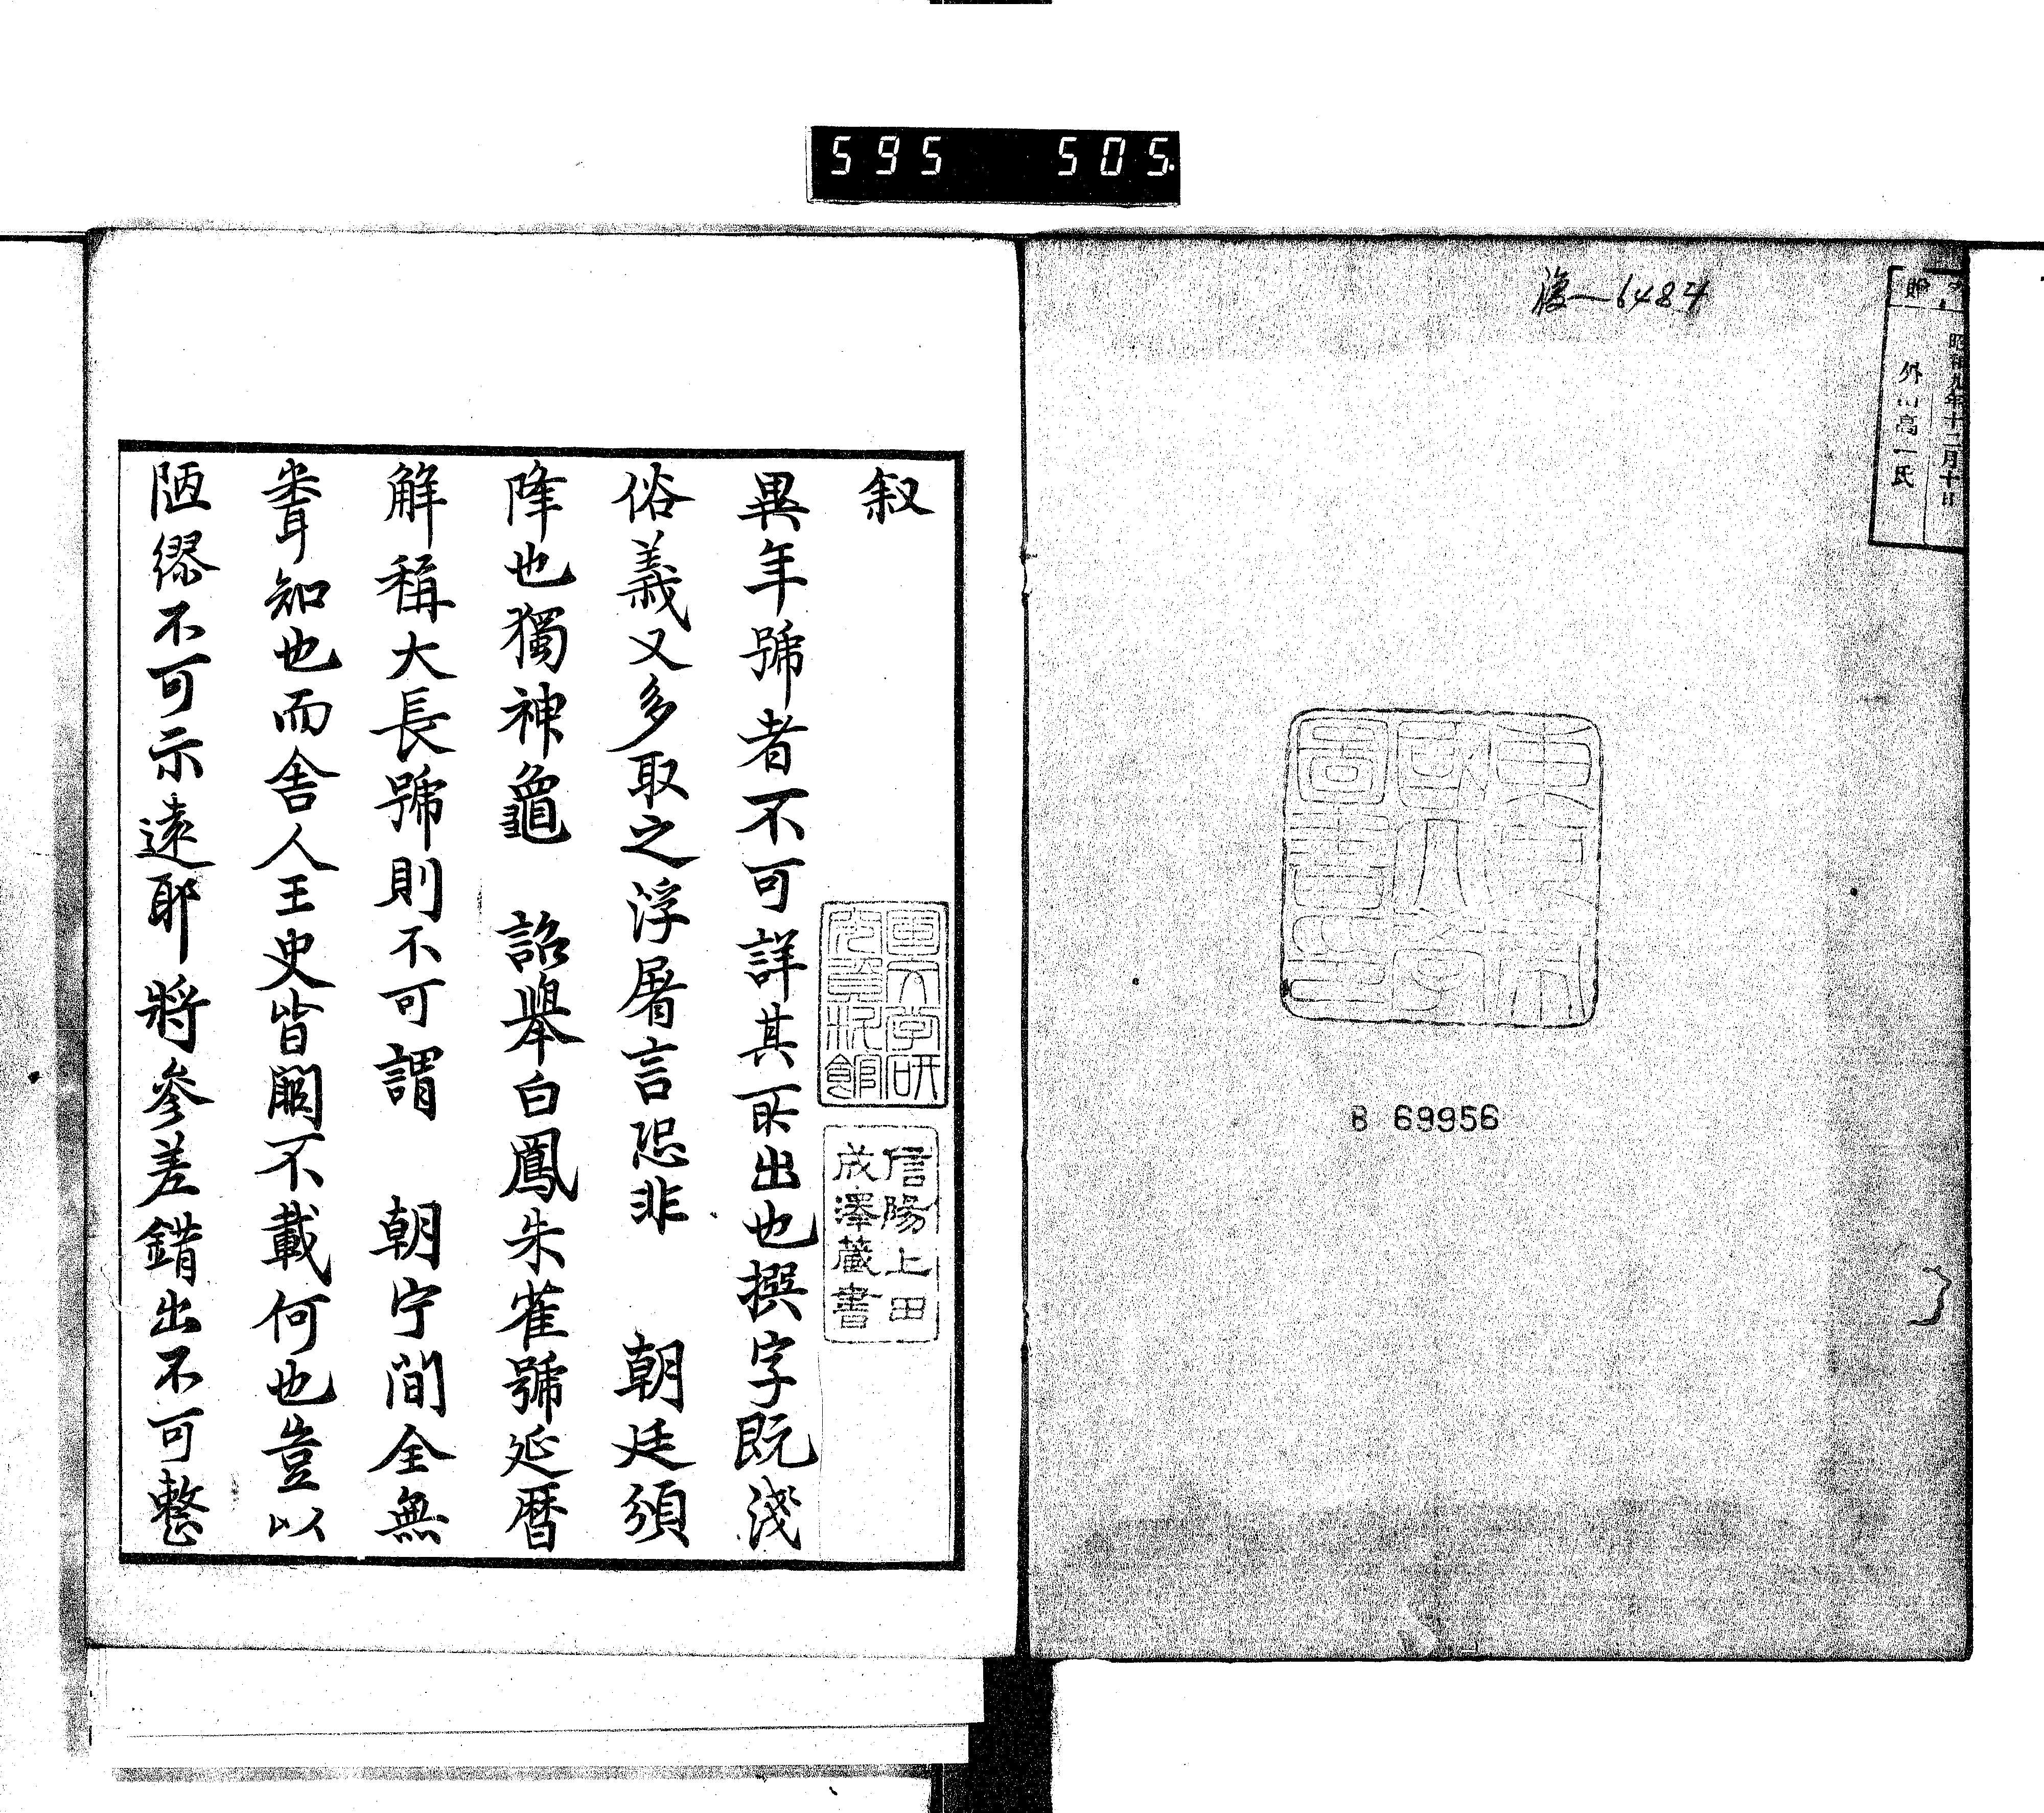 595 505
復一6484
贈
昭和九年十二月十日
外川高一氏
東京帝
國大學
圖書印
B 69956
叙
異年號者不可詳其所出也撰字既淺
俗義又多取之浮屠言恐非 朝廷頒
降也獨神龜 詔舉白鳳朱雀號延曆
解稱大長號則不可謂 朝宁間全無
耆知也而舍人王史皆闕不載何也豈以
陋繆不可示遠耶將參差錯出不可整
信陽上田
成澤藏書